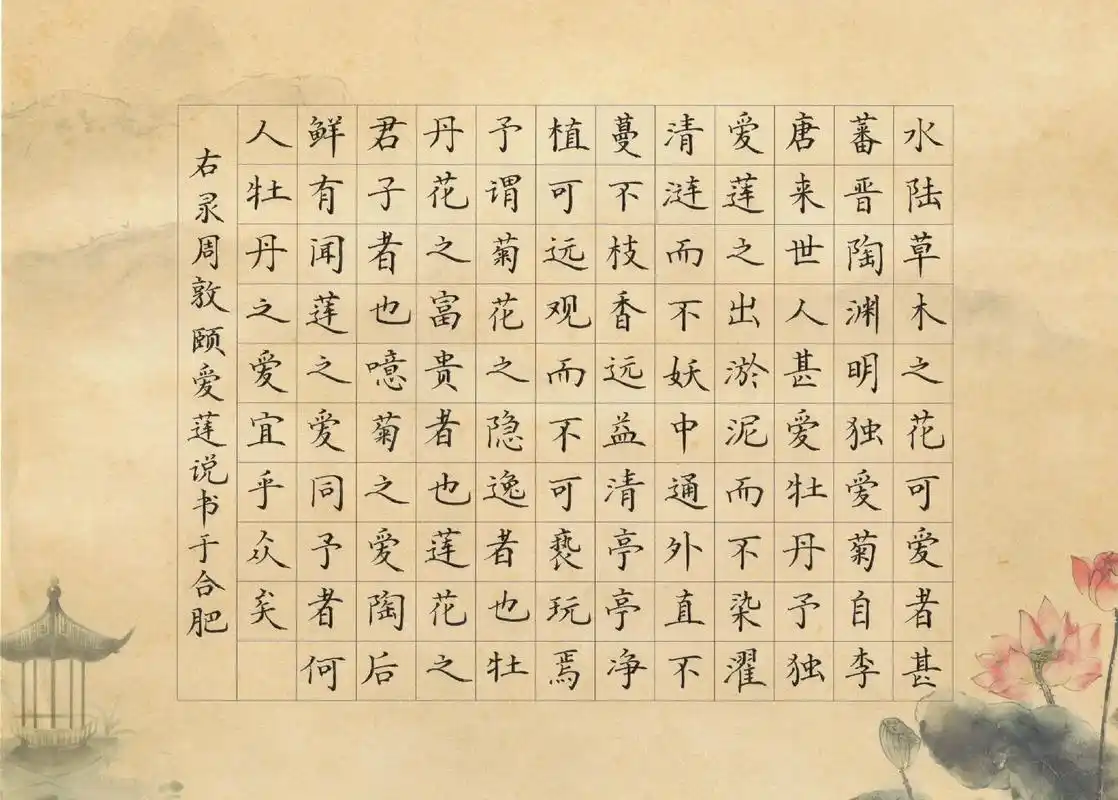 水陆草木之花可爱者甚
蕃晋陶渊明独爱菊自李
唐来世人甚爱牡丹予独
爱莲之出淤泥而不染濯
清涟而不妖中通外直不
蔓不枝香远益清亭亭净
植可远观而不可亵玩焉
予谓菊花之隐逸者也牡
丹花之富贵者也莲花之
君子者也噫菊之爱陶后
鲜有闻莲之爱同予者何
人牡丹之爱宜乎众矣
右录周敦颐爱莲说书于合肥